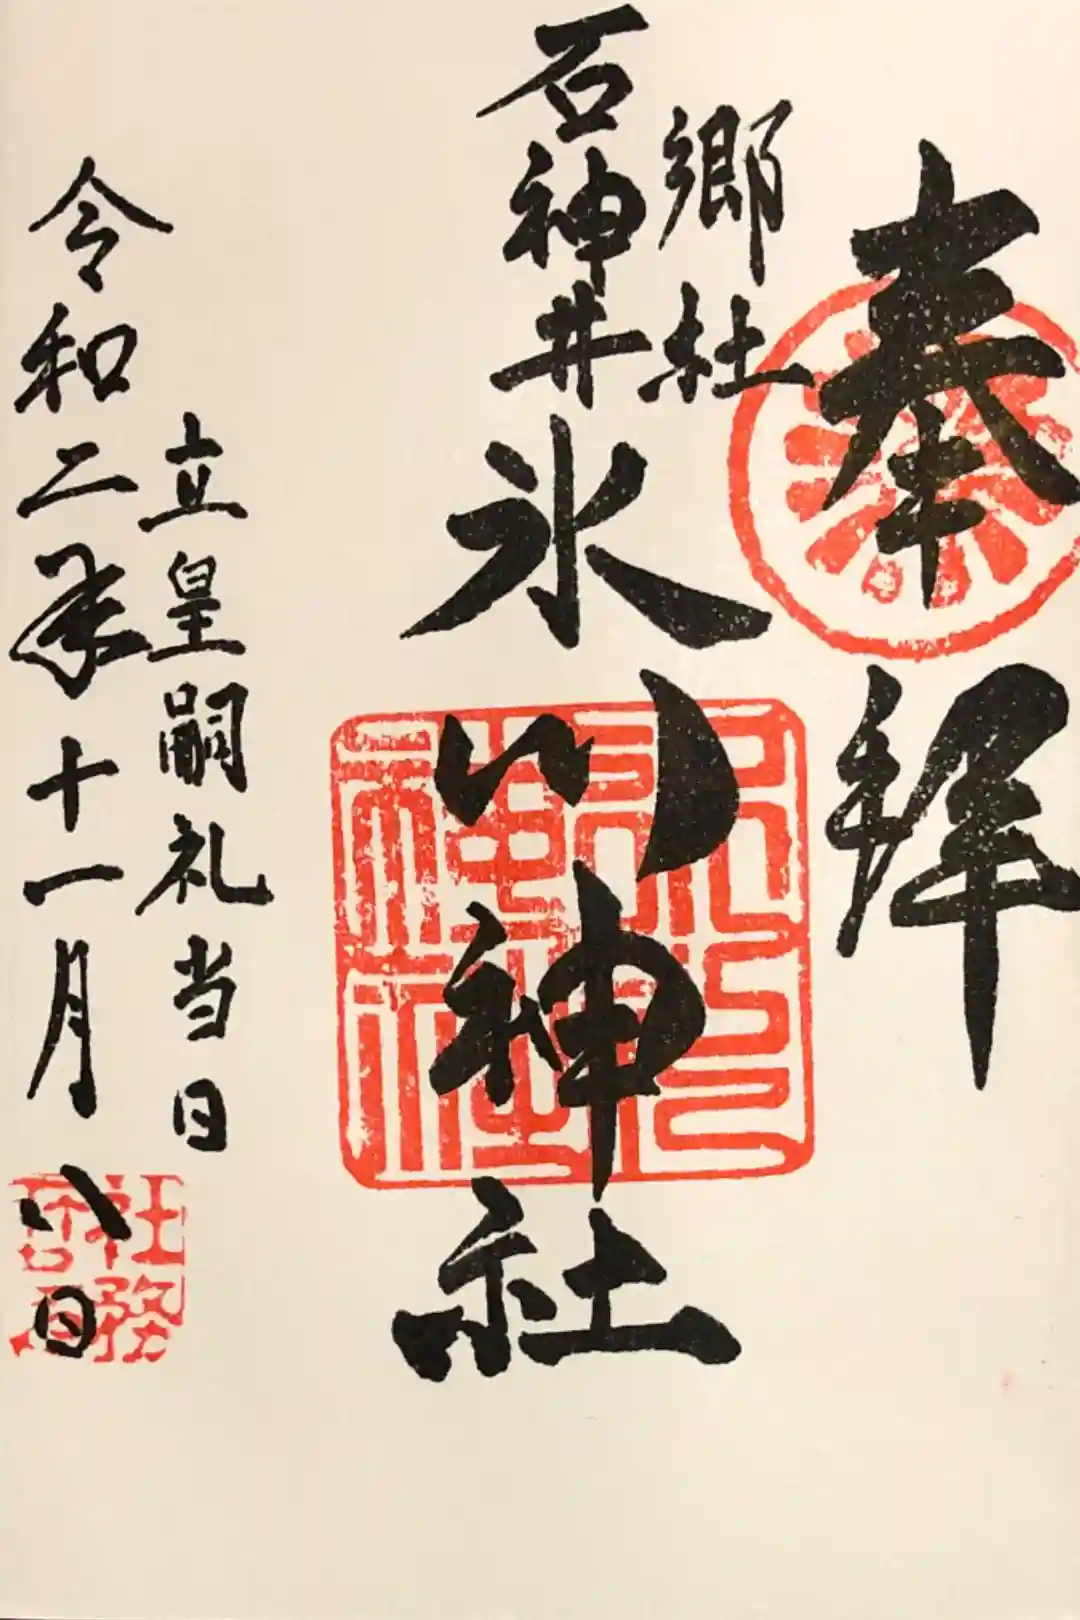 奉拝
郷社
石神井
氷川神社
立皇嗣礼当日
令和二年十一月八日
氷川神社
社務